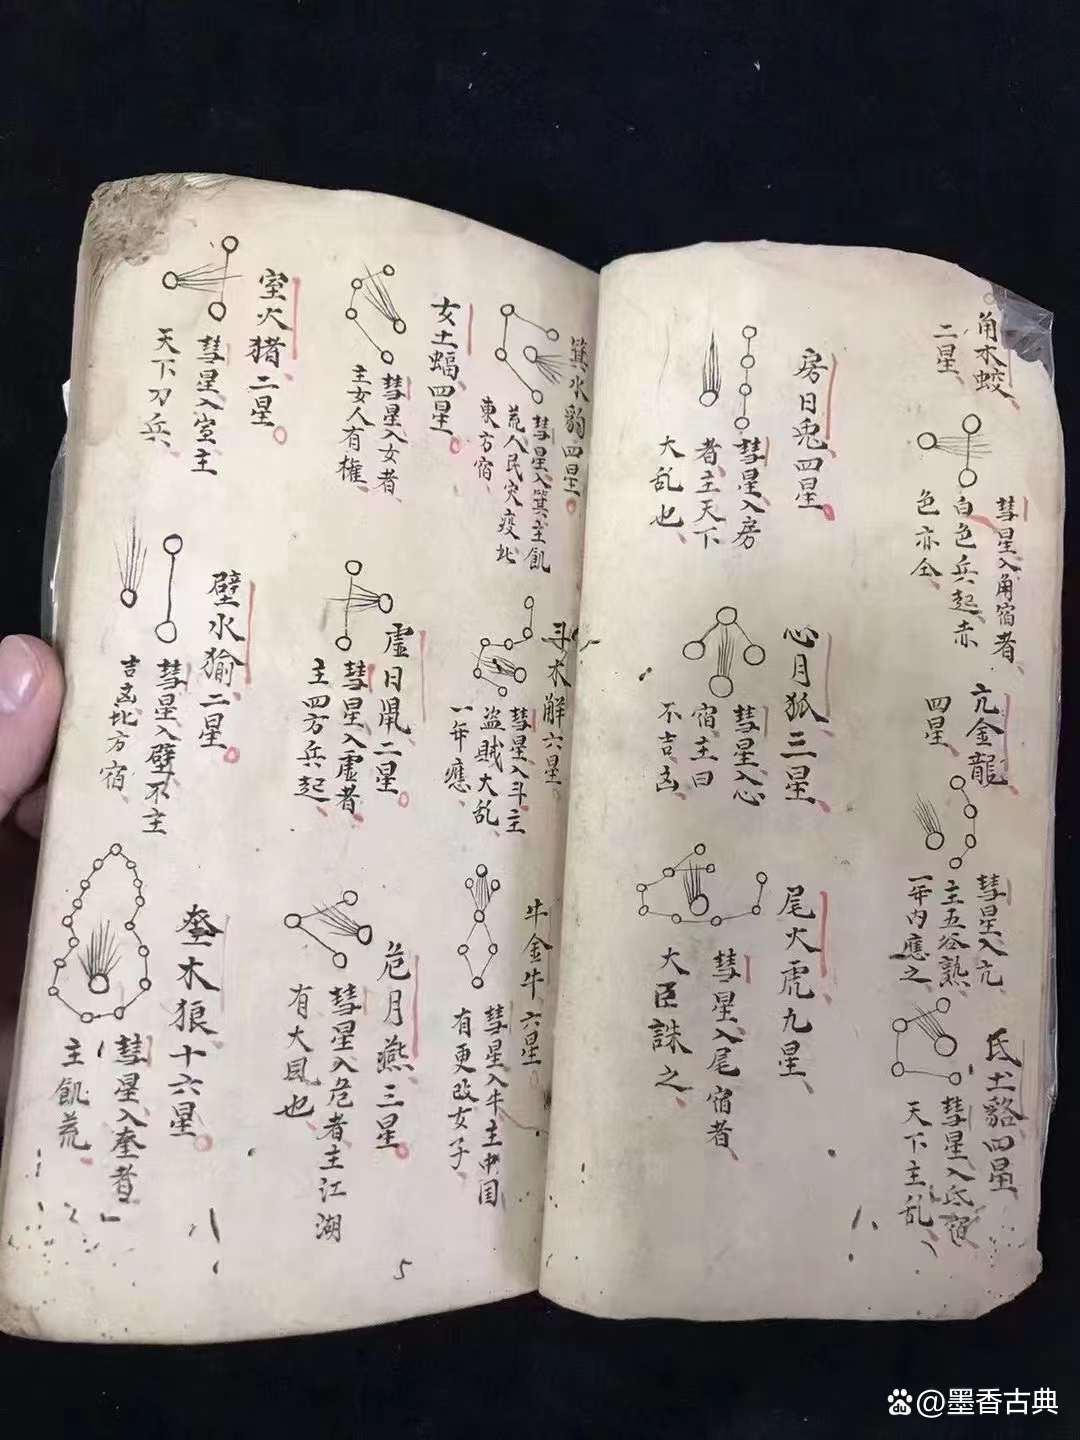 角木蛟
二星
彗星入角宿者
白色兵起赤
色亦仝
亢金龍
四星
彗星入亢
主五谷熟
一年内應之
氐土貉四星
彗星入氐宿
天下主乱
房日兎四星
彗星入房
者主天下
大乱也
心月狐三星
彗星入心
宿主曰
不吉凶
尾火虎九星
彗星入尾宿者
大臣誅之
箕水豹四星
彗星入箕主飢
荒人民灾疫北
東方宿
斗木觧六星
彗星入斗主
盗賊大乱
一年應
牛金牛六星
彗星入牛主中国
有更改女子
女土蝠四星
彗星入女者
主女人有權
虚日鼠二星
彗星入虚者
主四方兵起
危月燕三星
彗星入危者主江湖
有大風也
室火猪二星
彗星入室主
天下刀兵
壁水㺄二星
彗星入壁不主
吉凶北方宿
奎木狼十六星
彗星入奎者
主飢荒
5
du @墨香古典